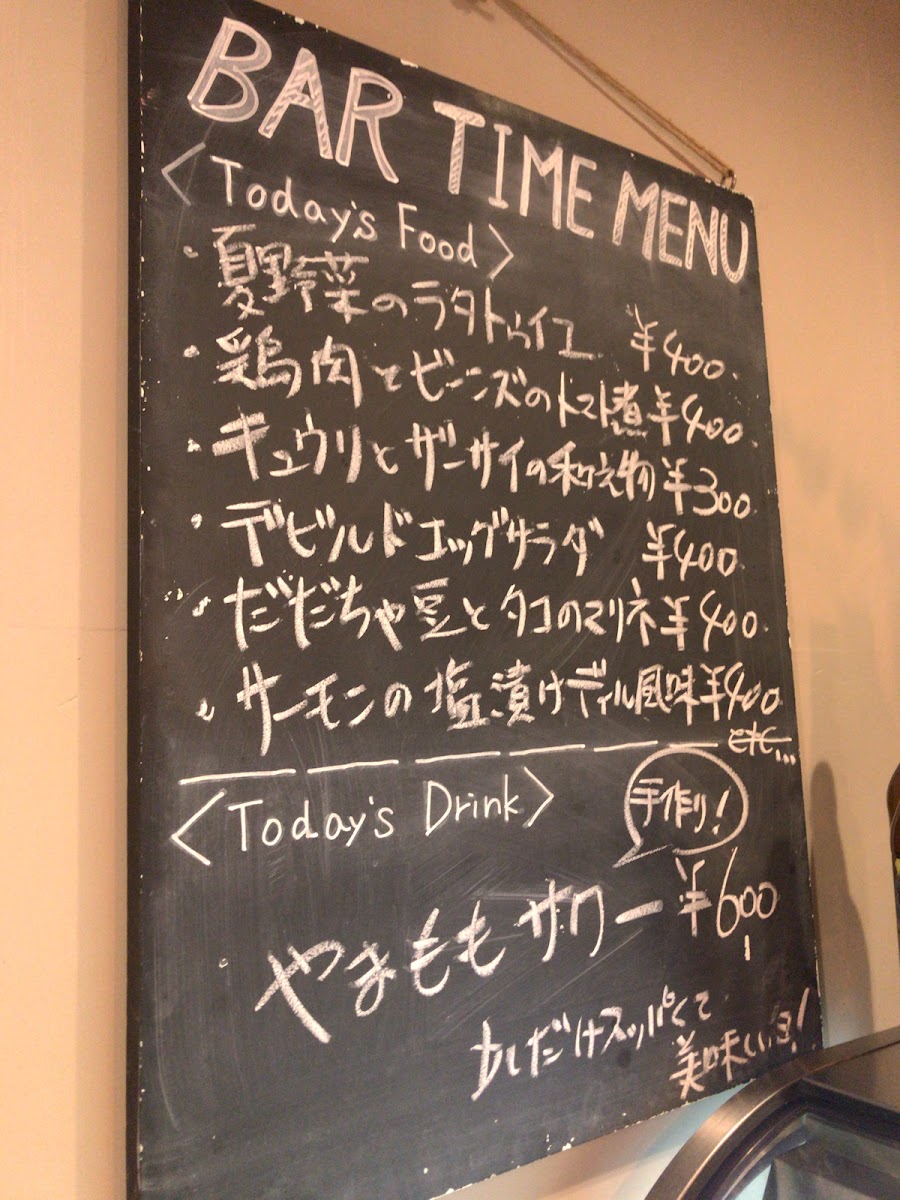 BAR TIME MENU
<Today's Food>
・夏野菜のラタトゥイユ ¥400.
・鶏肉とビーンズのトマト煮 ¥400.
・キュウリとザーサイの和え物 ¥300
・デビルドエッグサラダ ¥400.
・だだちゃ豆とタコのマリネ ¥400.
・サーモンの塩漬けディル風味 ¥400
etc...
<Today's Drink>
手作り!
やまももサワー ¥600
少しだけスッパくて
美味しい!